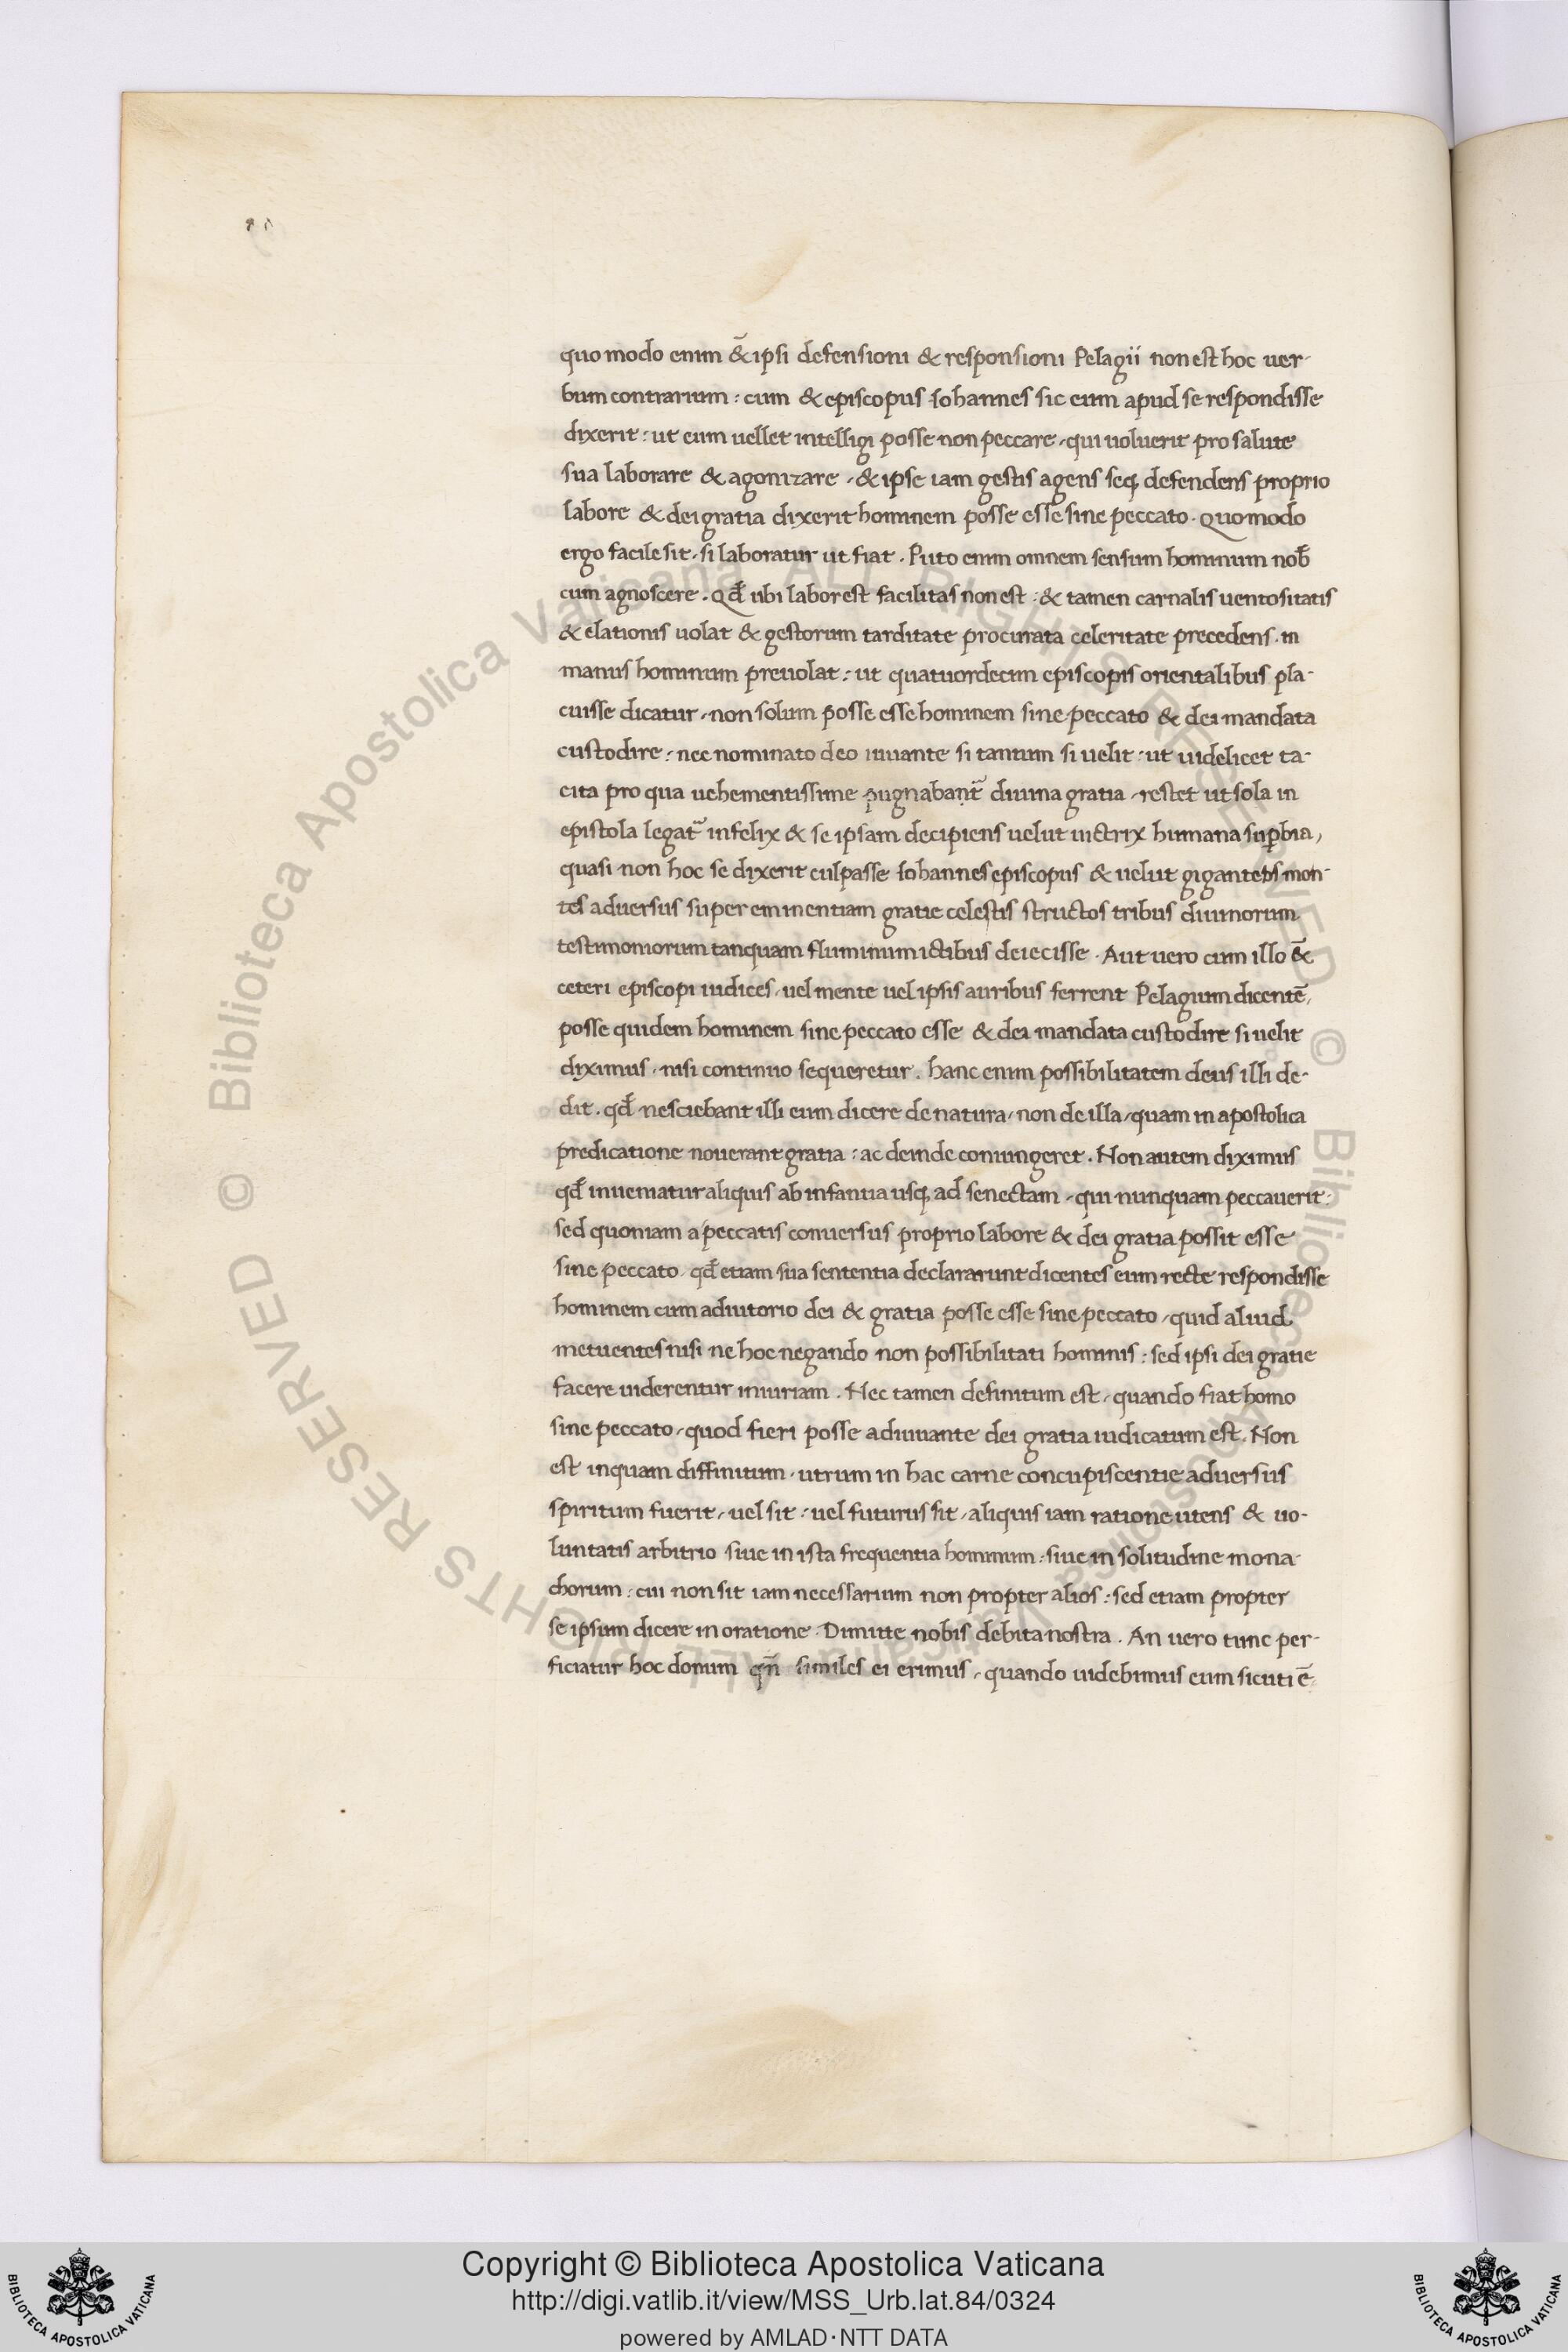 quo modo enim &̃ ipsi defensioni & responsioni Pelagii non est hoc uer-
bum contrarium : cum & episcopus Iohannes sic eum apud se respondisse
dixerit : ut eum uellet intelligi posse non peccare, qui uoluerit pro salute
sua laborare & agonizare, & ipse iam gestis agens seq; defendens proprio
labore & dei gratia dixerit hominem posse esse sine peccato. Quomodo
ergo facile sit, si laboratur ut fiat. Puto enim omnem sensum hominum nob̄
cum agnoscere. Qd̄ ubi labor est facilitas non est : & tamen carnalis uentositatis
& elationis uolat & gestorum tarditate procurata celeritate precedens, in
manus hominum preuolat : ut quatuordecim episcopis orientalibus pla-
cuisse dicatur, non solum posse esse hominem sine peccato & dei mandata
custodire : nec nominato deo iuuante si tantum si uelit : ut uidelicet ta-
cita pro qua uehementissime pugnabant̃ diuina gratia, restet ut sola in
epistola legat̃ infelix & se ipsam decipiens uelut uictrix humana sup̱bia,
quasi non hoc se dixerit culpasse Iohannes episcopus & uelut mon-
tes aduersus super eminentiam gratie celestis structos tribus diuinorum
testimoniorum tanquam fluminum ictibus deiecisse. Aut uero cum illo &̃
ceteri episcopi iudices, uel mente uel ipsis auribus ferrent Pelagium dicentē,
posse quidem hominem sine peccato esse & dei mandata custodire si uelit
diximus, nisi continuo sequeretur. hanc enim possibilitatem deus illi de-
dit. qd̄ nesciebant illi eum dicere de natura, non de illa, quam in apostolica
predicatione nouerant gratia : ac deinde coniungeret. Non autem diximus
qd̄ inueniatur aliquis ab infantia usq; ad senectam, qui nunquam peccauerit :
sed quoniam a peccatis conuersus proprio labore & dei gratia possit esse
sine peccato, qd̄ etiam sua sententia declararunt dicentes eum recte respondisse
hominem cum adiutorio dei & gratia posse esse sine peccato, quid aliud
metuentes nisi ne hoc negando non possibilitati hominis : sed ipsi dei gratie
facere uiderentur iniuriam. Nec tamen definitum est, quando fiat homo
sine peccato, quod fieri posse adiuuante dei gratia iudicatum est. Non
est inquam diffinitum, utrum in hac carne concupiscentie aduersus
spiritum fuerit, uel sit : uel futurus sit, aliquis iam ratione utens & uo-
luntatis arbitrio siue in ista frequentia hominum : siue in solitudine mona-
chorum : cui non sit iam necessarium non propter alios : sed etiam propter
se ipsum dicere in oratione. Dimitte nobis debita nostra. An uero tunc per-
ficiatur hoc donum qñ similes ei erimus, quando uidebimus eum sicuti ē.
© Biblioteca Apostolica Vaticana ALL RIGHTS RESERVED © Biblioteca Apostolica Vaticana ALL RIGHTS RESERVED
Copyright © Biblioteca Apostolica Vaticana
http://digi.vatlib.it/view/MSS_Urb.lat.84/0324
powered by AMLAD·NTT DATA
BIBLIOTECA APOSTOLICA VATICANA
BIBLIOTECA APOSTOLICA VATICANA